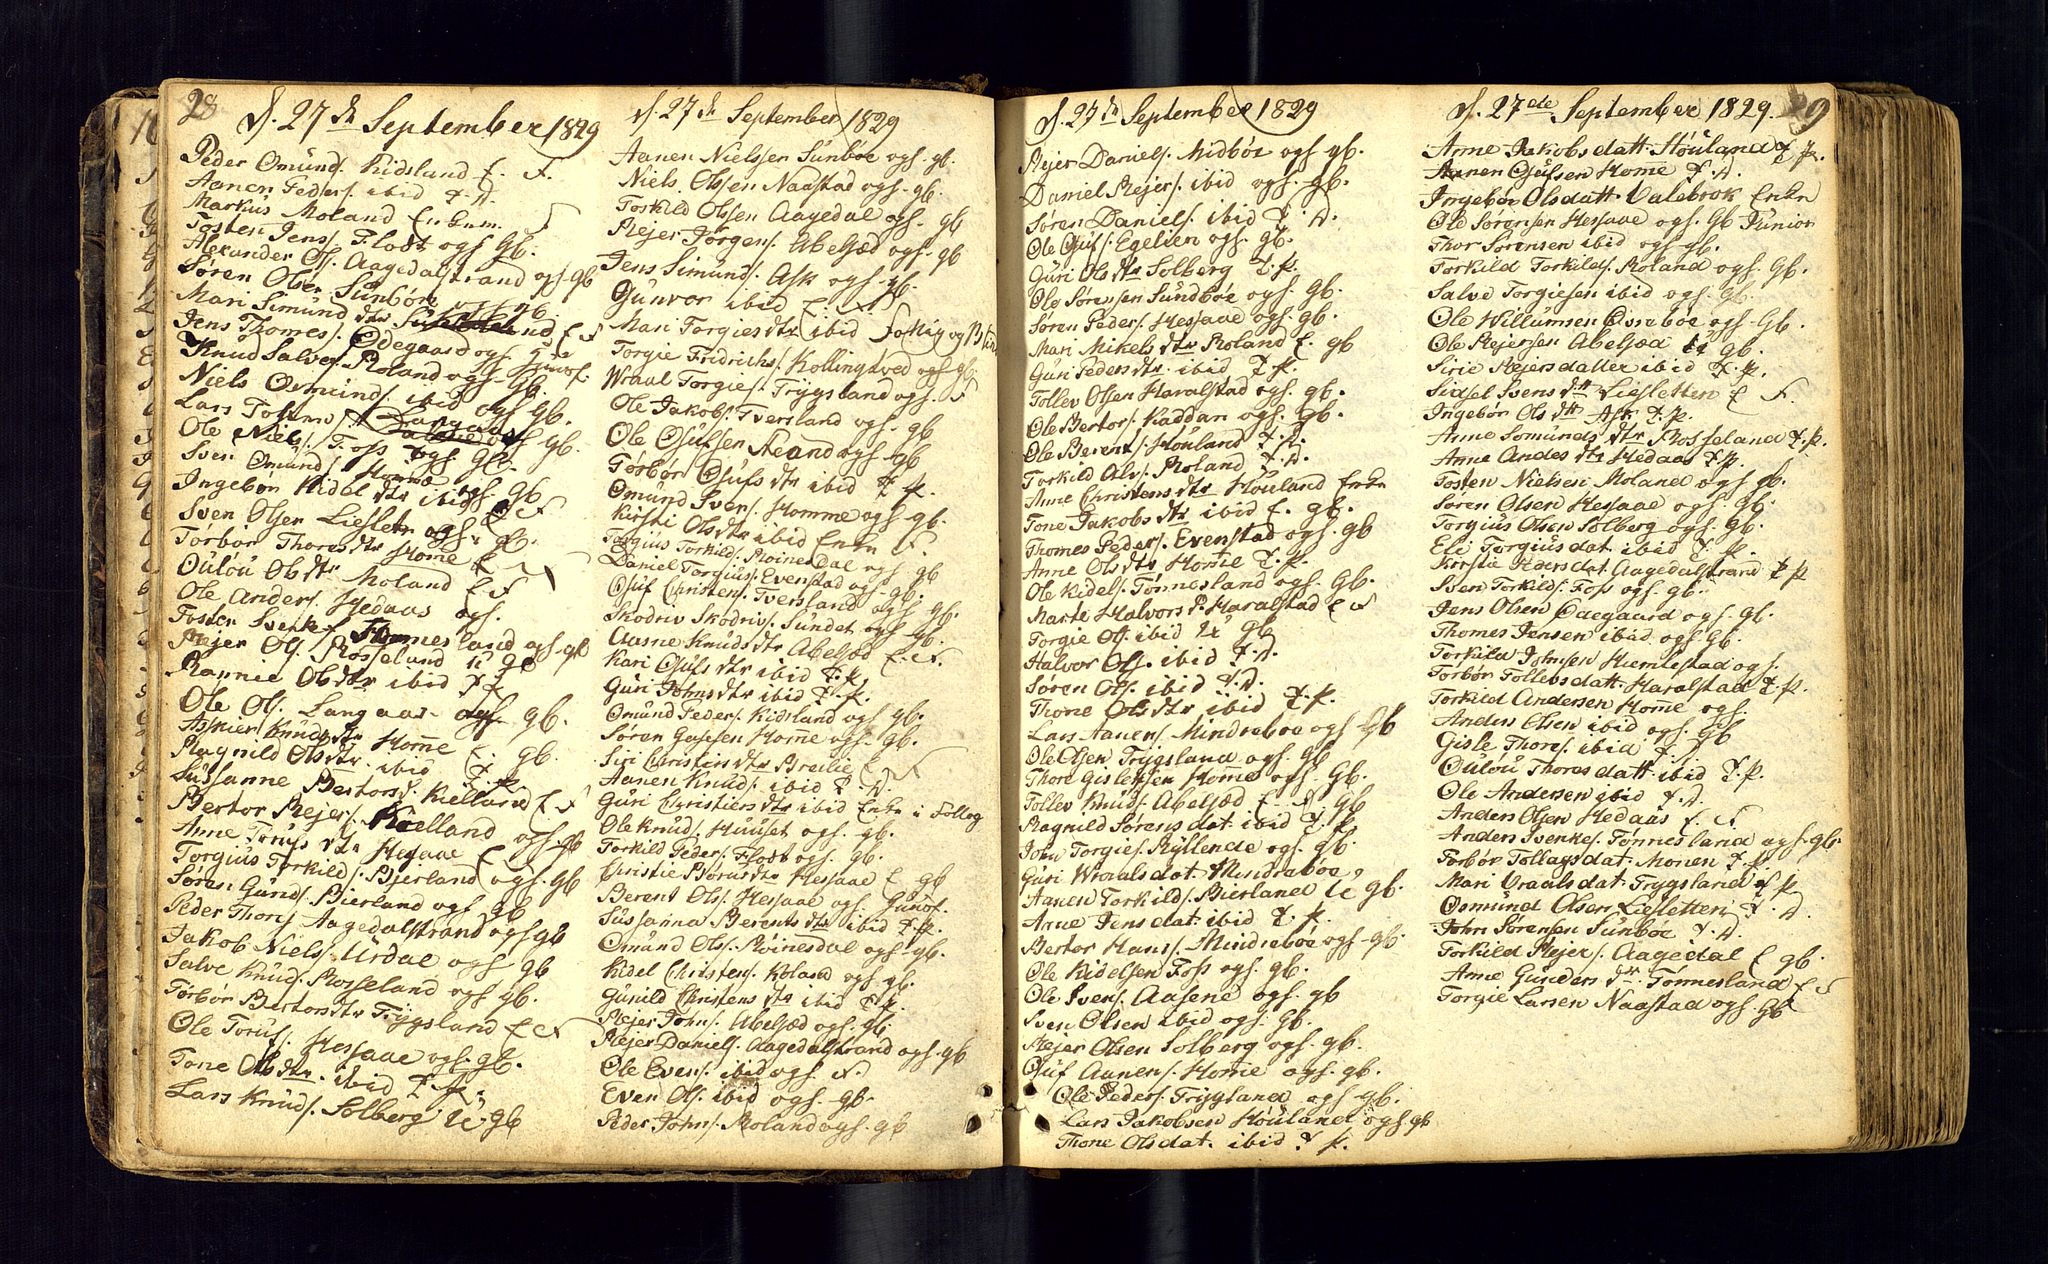 28
d. 27de September 1829
Peder Omunds. Kidsland E. F.
Aanen Peders. ibid T. D.
Markus Moland Enkem.
Tosten Jens. Flott ogs. Gb.
Alexander Ols. Aagedalstrand ogs. Gb
Søren Olsen Sünböe ogs. gb.
Mari Simünd dtr E F
Jens Thomes. Ödegaard ogs.
Knud Salves. Roland ogs. Gb.
Niels Osmunds. ibid ogs Gb.
Lars ogs Gb.
Ole Niels. Foss ogs Gb.
Sven Omünds. Homme ogs. gb
Ingebor Kidel dtr ibid E F
Sven Olsen Liesletn ogs. gb.
Torbor Thores dtr Home E
Oülöü Ols dtr Moland E F
Ole Anders. Hedaas ogs.
Tosten Svenkes. Tönnesland ogs. gb
Rejer Ols. Rosseland u gb
Rannie Ols dtr ibid T p
Ole Ols. Langaas ogs. gb.
Asskier Knüds dtr Home E. gb.
Ragnild Ols dtr. ibid T. p
Süssanne Bertors d. Kielland E F
Bertor Rejers. Kielland ogs. gb
Anne Torüfs dtr Hesaae E
Torgiüs Torkilds. Bjerland ogs. Gb
Søren Günds. Bierland ogs gb
Peder Thors. Aagedalstrand ogs gb
Jakob Niels. Ürdal ogs gb
Salve Knüds. Rosseland ogs gb.
Torbör Bertors dtr Trÿgsland E F
Ole Torüfs. Hessaae ogs. gb.
Tone Ols dtr. ibid T. p.
Lars Knüds. Solberg u gb
d. 27de September 1829
Aanen Nielssen Sünböe ogs. gb.
Niels. Olssen Naastad ogs. gb.
Torkild Olssen Aagedal ogs. gb
Rejer Jørgens. Abelsæd ogs. gb
Jens Simünds. Ask ogs. gb.
Günvor ibid E. F.
Mari Torgies dtr ibid fattig og Blind
Torgie Fridrichs. Kollingtved ogs. gb.
Wraal Torgies. Trÿgsland ogs. F
Ole Jakobs. Tversland ogs. gb
Ole Osüfssen Neand ogs. gb
Torbör Osüfs dtr ibid T. p.
Omund Svens. Homme ogs. gb.
Kirsti Ols dtr ibid Enke F.
Torgiüs Torkilds. Roinesdal ogs gb
Daniel Torgiüs. Evenstad ogs. gb.
Osüf Christens. Tversland ogs. gb.
Skodriv Skodrivs. Sundet ogs. gb.
Aasne Knüds dtr Abelsæd E. F.
Kari Osüfs dtr ibid T. p.
Güri Johns dtr ibid T. p.
Omünd Peders. Kidsland ogs. gb.
Sören Homme ogs. gb.
Siri Christens dtr Breilie E F
Aanen Knüds. ibid T. D.
Güri Christens dtr ibid Enke i Follog
Ole Knüds. Hüüset ogs. gb.
Torkild Peders. Flott ogs. gb.
Christie dtr Hessaae E gb
Berent Ols. Hessaae ogs. Günds.
Süssanna Berents dtr ibid T. p.
Omünd Ols. Roinesdal ogs. gb.
Kidel Christens. Roland ogs. gb.
Günild Christens dtr ibid T. p.
Rejer Johns. Abelsæd ogs. gb.
Rejer Daniels. Aagedalstrand ogs. gb
Ole Evens. ibid ogs. F.
Even Ols. ibid ogs. gb.
Peder Johns. Roland ogs. gb
d. 27de September 1829
Rejer Daniels. Midböe ogs. gb.
Daniel Rejers. ibid ogs. gb.
Søren Daniels. ibid T. D.
Ole Osüfs. Egelien ogs. gb.
Güri Ols dtr Solberg T. p.
Ole Sørenssen Sündböe ogs. gb.
Søren Peders. Hessaae ogs. gb.
Mari Mikels dtr Roland E. gb
Güri Peders dtr. ibid T. p.
Tollev Olsen Haralstad ogs. gb.
Ole Bertors. Kaddan ogs. gb.
Ole Berents. Höüland T. D.
Torkild Olss. Roland T. D.
Anne Christens dtr Höüland Enke
Tone Jakobs dtr ibid E. gb.
Thomes Peders. Evenstad ogs. gb
Anne Ols dtr Home T. p.
Ole Kidels. Tønnesland ogs. Gb.
Marte Halvors D. Haralstad E F
Torgie Ols. ibid U gb
Halvor Ols. ibid T. D.
Søren Ols. ibid T. D.
Thone Ols dtr ibid T. p.
Lars Aanens. Mindreboe ogs. gb
Ole Olsen Trÿgsland ogs. gb
Thore Gislessen Home ogs. gb.
Tollev Knüds. Abelsæd E. F. gb
Ragnild Sørens dat. ibid T. p
John Torgies. Rÿllende ogs. gb.
Güri Wraals dat. Mindreböe
Aanen Torkilds. Bierland U gb.
Arne Jens dat. ibid T. p.
Bertor Hans. Mindreböe ogs. gb.
Ole Kidelsen Foss ogs. gb.
Ole Svens. Aasene ogs. gb
Sven Olsen ibid ogs. gb.
Rejer Olsen Solberg ogs. gb.
Osüf Aanens. Home ogs. gb.
Ole Peders. Trÿgland ogs. gb.
Lars Jakobsen Höüland ogs gb
Thone Ols dat. ibid T. p.
29
d. 27de September 1829.
Anne Jakobs datt. Höüland T. p.
Aanen Osüfsen Home T. D.
Ingebør Ols datt. Valebrok Enke
Ole Sørensen Hessaae ogs. gb Junior
Thor Sørensen ibid ogs. gb.
Torkild Torkilds. Roland ogs. gb.
Salve Torgiesen ibid ogs. gb.
Ole Willümsen Osseböe ogs. gb.
Ole Rejersen Abelsæd U gb.
Sirie Rejers datter ibid T. p.
Sidsel Svens dtt Liesletten E F.
Ingebør Ols dtt Ask T. p.
Anne Somünds dtr Rosseland T. p.
Anne Andes dtr Hedaas T. p.
Tosten Nielsen Moland ogs gb.
Søren Olsen Hessaae ogs. gb.
Torgius Olsen Solberg ogs. gb.
Eli Torgiüs dat. ibid T. p.
Kirstie Peders dat. Aagedalstrand T. p
Sven Torkilds. Foss ogs. gb.
Jens Olsen Ödegaard ogs. gb.
Thomes Jensen ibid ogs. gb.
Torkild Johnsen Hiemlestad ogs.
Torbör Tollevs datt. Haralstad T. p.
Torkild Andersen Home ogs.
Anders Olsen ibid ogs. gb
Gisle Thores. ibid T. D
Oülöü Thores datt. ibid T. p.
Ole Andersen ibid T. D.
Anders Olsen Hedaas E. F
Anders Svenkes. Tønnesland ogs. gb.
Torbör Tollags dat. Monen T. p
Mari Vraals dat. Trÿgsland T p
Osmünd Olsen Liesletten T. D.
John Sørensen Sünböe T. D.
Torkild Rejers. Aagedal E gb.
Anne Gunders dtr. Tønnesland E F
Torgie Larsen Naastad ogs. gb